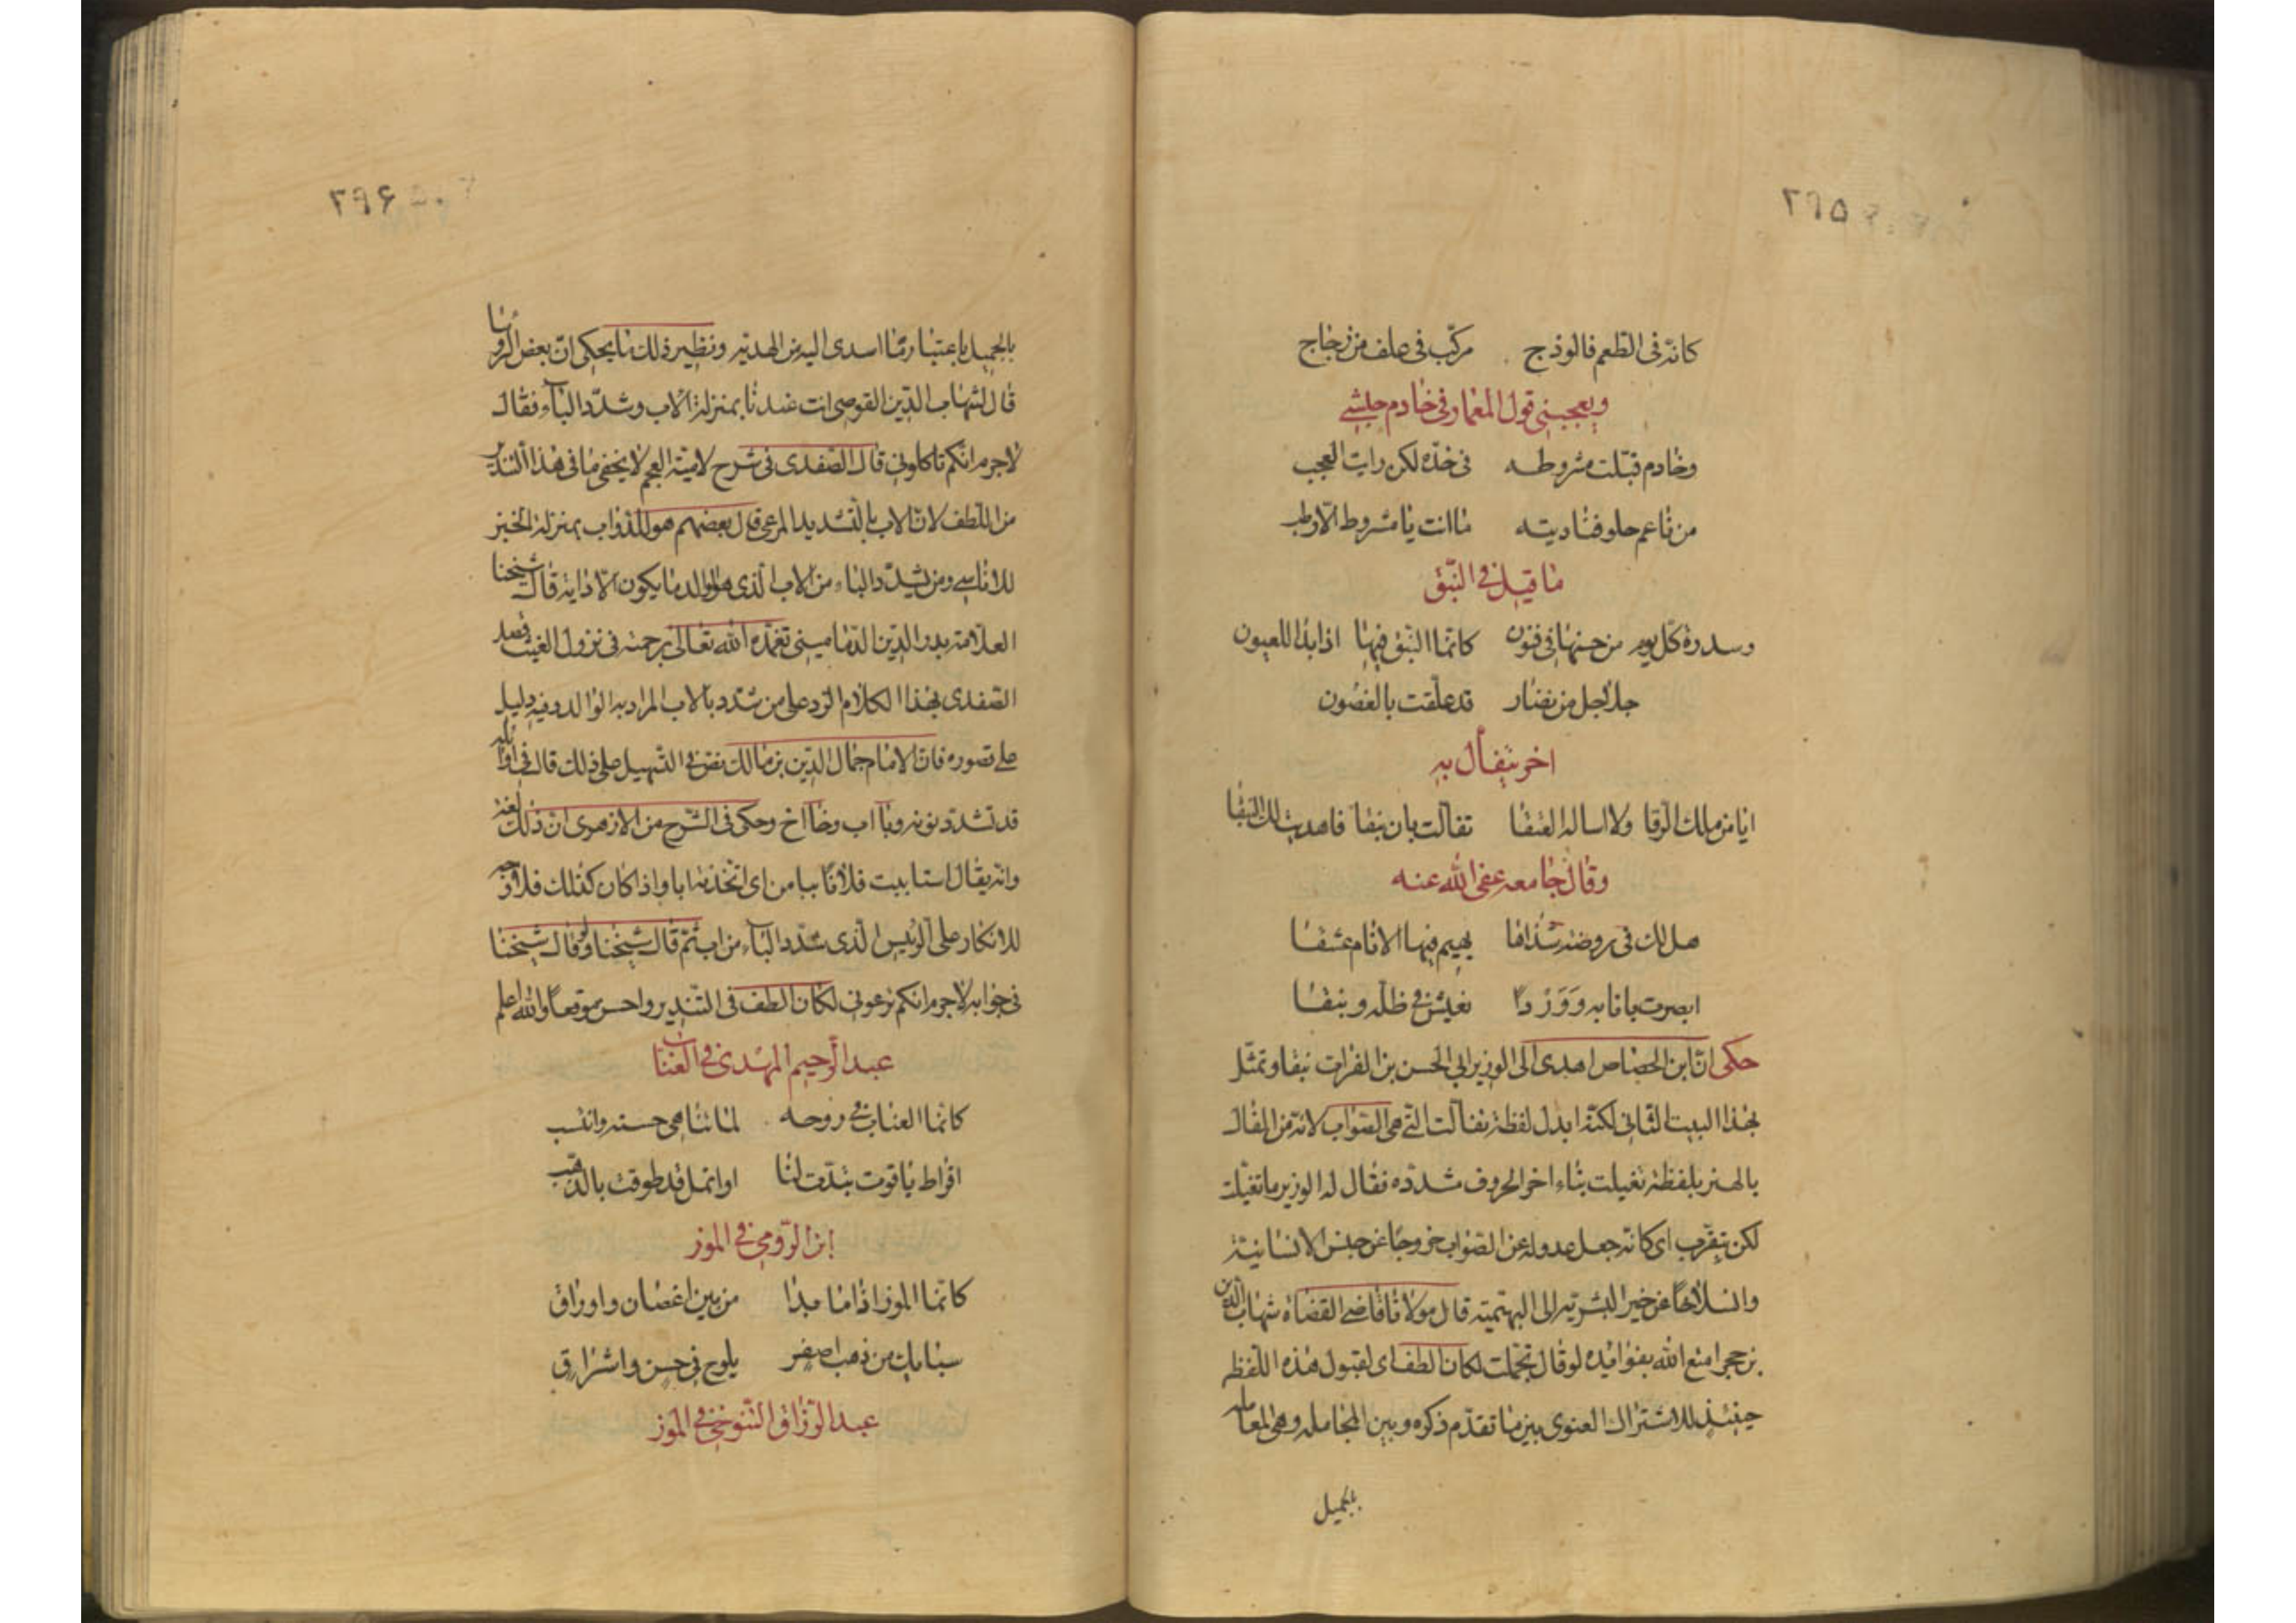 ٢٩٥
كانه فی الطعم فالوذج مركّب فی علف من زجاج
ويعجبنی قول المعمار فی خادم حبشی
وخادم قبّلت مشروطه فی خدّه لكن رايت العجب
من ناعم حلو فناديته ما انت يا مشروط الاّ وطب
ما قيل فی النّبق
وسدرة كل يوم من حسنها فی فنون كانّما النّبق فيها اذا بدا للعيون
جلاجل من نضار قد علّقت بالغصون
اخر يتفأل به
ايا من ملك الرقا ولا اساله العتقا تفالت بان نبقا فاهديت لك النبقا
وقال جامعه عفی الله عنه
هل لك فی روضة شذاها يهيم فيها الانام عشقا
ابصرت بانا به ووردا نعيش فی ظلّه ونبقا
حكی انّ ابن الجصاص اهدی الی الوزير ابی الحسن بن الفرات نبقا وتمثّل
بهذا البيت الثانی لكنّه ابدل لفظة تفالت الّتی هی الصّواب لانّه من الفال
بالهمز بلفظة تغيلت بثاء اخر الحروف مشدّده فقال له الوزير ما تغيّلت
لكن تبقّرت ای كانه جعل عدوله عن الصّواب خروجا عن جنس الانسانيّة
وانسلاخا عن خير البشريّه الی البهيميّه قال مولانا قاضی القضاة شهاب الدّين
بن حجر امتع الله بفوائده لو قال تجمّلت لكان الطف ای لقبول هذه اللّفظه
حينئذ للاشتراك المعنوی بين ما تقدّم ذكره وبين المجامله وهی المعامله
بالجميل
٢٩۶
بالجميل باعتبار ما اسدی اليه من الهديّه ونظير ذلك ما يحكی انّ بعض الروسا
قال لشهاب الدّين القوصی انت عندنا بمنزلة الاب وشدّد الباء فقال
لا جرم انكم تاكلونی قال الصّفدی فی شرح لاميّة العجم لا يخفی ما فی هذا التندير
من اللّطف لانّ الاب بالتّشديد المرعی قال بعضهم هو للدّواب بمنزلة الخبز
للاناسی ومن شدّد الباء من الاب الّذی هو الوالد ما يكون الاّ دابه قال شيخنا
العلاّمة بدر الدّين الدّمامينی تغمّده الله تعالی برحمته فی نزول الغيث قصد
الصّفدی بهذا الكلام الرد علی من شدّد با الاب المراد به الوالد وفيه دليل
علی قصوره فانّ الامام جمال الدّين بن مالك نصّ فی التّسهيل علی ذلك قال فی اوائله
قد تشدّد نونه وبا اب وخا اخ وحكی فی الشّرح من الازهری انّ ذلك لغة
وانّه يقال استابيت فلانا ببا من ای اتخذته ابا واذا كان كذلك فلا وجه
للانكار علی الرئيس الّذی شدّد الباء من اب ثمّ قال شيخنا ولو قال شيخنا
فی جوابه لا جرم انكم ترعونی لكان الطف فی التّندير واحسن موقعا والله اعلم
عبد الرّحيم المهدی فی العناب
كانّما العناب فی دوحه لما تناهی حسنه وانتسب
اقراط ياقوت تبدّت لنا او انمل قد طوقت بالذّهب
ابن الرّومی فی الموز
كانّما الموز اذا ما بدا من بين اغصان واوراق
سبايك من ذهب اصفر يلوح فی حسن واشراق
عبد الرّزاق التّنوخی فی الموز